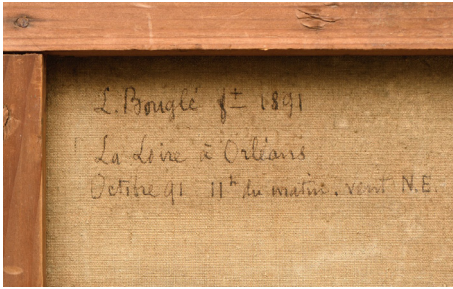 L. Bouglé f<sup>t</sup> 1891
La Loire à Orléans
Octibre 91 11<sup>h</sup> du matin. vent N.E.